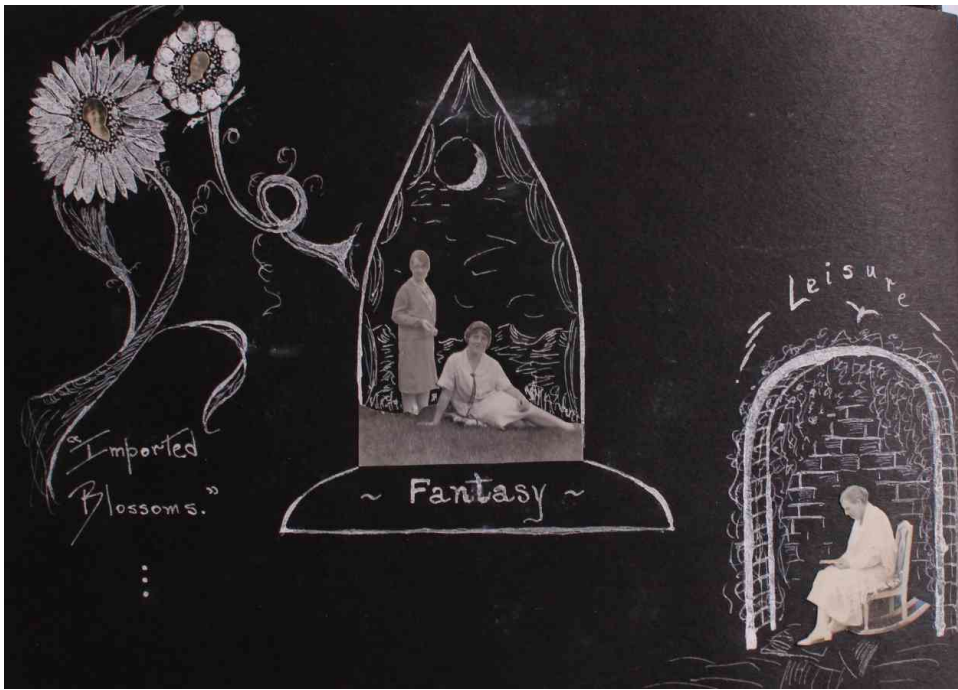 "Imported
Blossoms."
~ Fantasy ~
Leisure